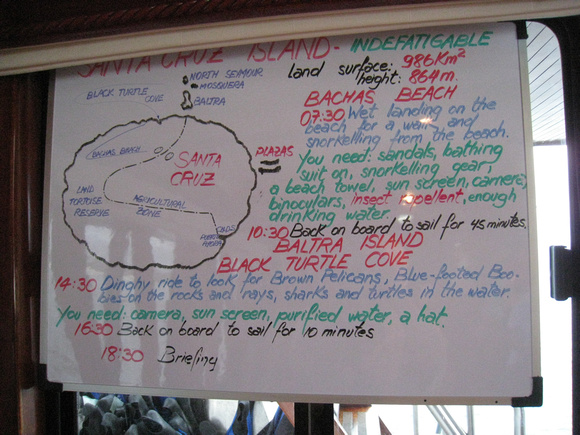 SANTA CRUZ ISLAND - INDEFATIGABLE
land surface: 986 Km²
height: 864 m.
NORTH SEYMOUR
MOSQUERA
BLACK TURTLE
COVE
BALTRA
BACHAS BEACH
SANTA
CRUZ
PLAZAS
LAND
TORTOISE
RESERVE
AGRICULTURAL
ZONE
PUERTO
AYORA
BACHAS BEACH
07:30 Wet landing on the
beach for a walk and
snorkelling from the beach.
You need: sandals, bathing
suit on, snorkelling gear,
a beach towel, sun screen, camera,
binoculars, insect repellent, enough
drinking water.
10:30 Back on board to sail for 45 minutes.
BALTRA ISLAND
BLACK TURTLE COVE
14:30 Dinghy ride to look for Brown Pelicans, Blue-footed Boo-
bies on the rocks and rays, sharks and turtles in the water.
You need: camera, sun screen, purified water, a hat.
16:30 Back on board to sail for 10 minutes
18:30 Briefing